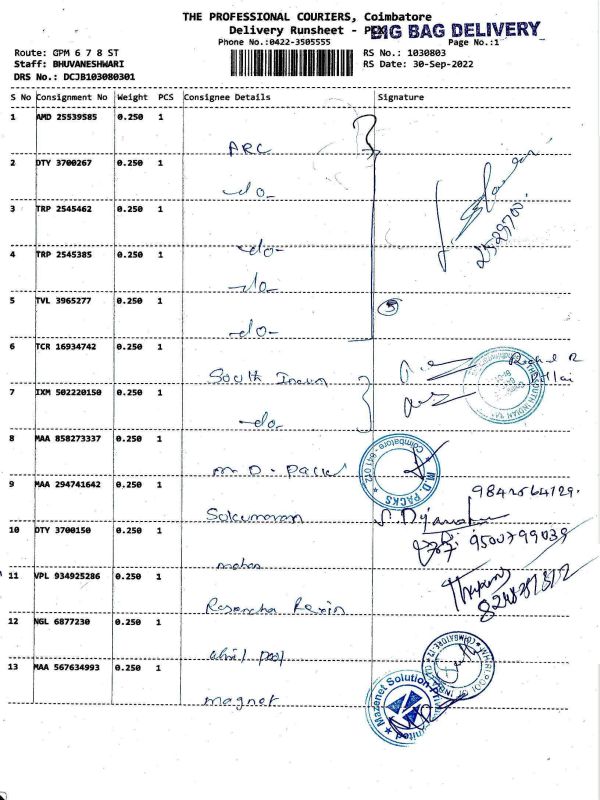 THE PROFESSIONAL COURIERS, Coimbatore
Delivery Runsheet - BIG BAG DELIVERY
Phone No.:0422-3505555 Page No.:1
Route: GPM 6 7 8 ST RS No.: 1030803
Staff: BHUVANESHWARI RS Date: 30-Sep-2022
DRS No.: DCJB103080301
S No Consignment No Weight PCS Consignee Details Signature
1 AMD 25539585 0.250 1
ARC
2 DTY 3700267 0.250 1
-do-
3 TRP 2545462 0.250 1
-do-
4 TRP 2545385 0.250 1
-do-
5 TVL 3965277 0.250 1
-do-
5
6 TCR 16934742 0.250 1
South Indian
7 IXM 502220150 0.250 1
-do-
8 MAA 858273337 0.250 1
M.D. Packs
M.D. PACKS
Coimbatore - 641 012
9 MAA 294741642 0.250 1
10 DTY 3700150 0.250 1
9500799039
mohan
11 VPL 934925286 0.250 1
12 NGL 6877230 0.250 1
13 MAA 567634993 0.250 1
magnet
Mazenet Solution